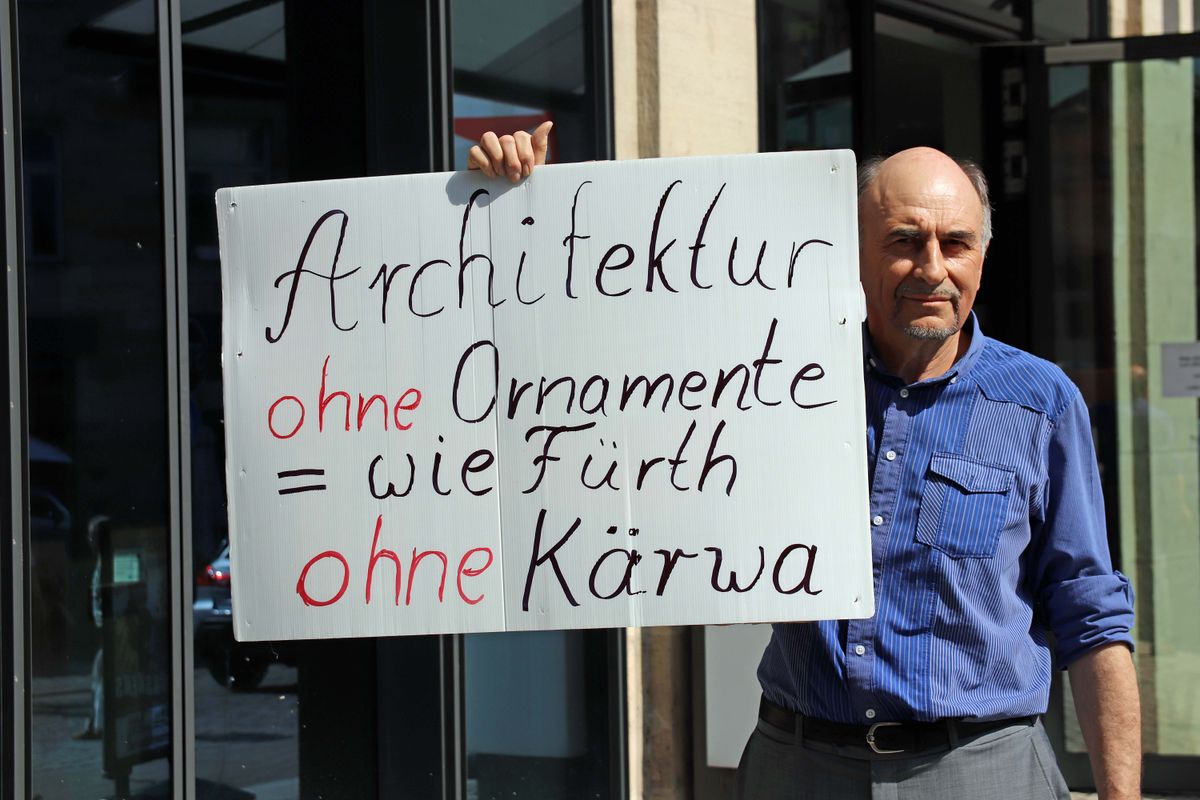 Architektur
ohne Ornamente
= wie Fürth
ohne Kärwa